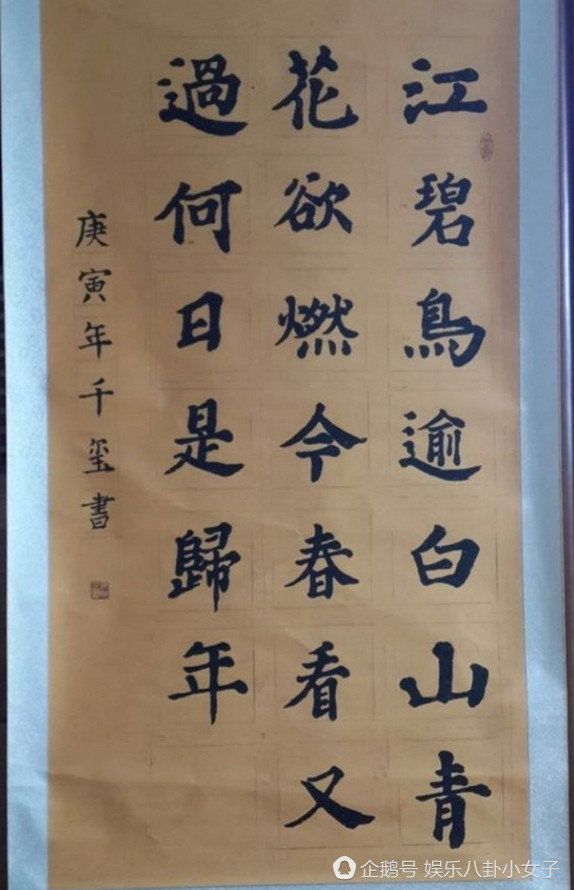 江碧鳥逾白山青
花欲燃今春看又
過何日是歸年
庚寅年千玺書
企鹅号 娱乐八卦小女子